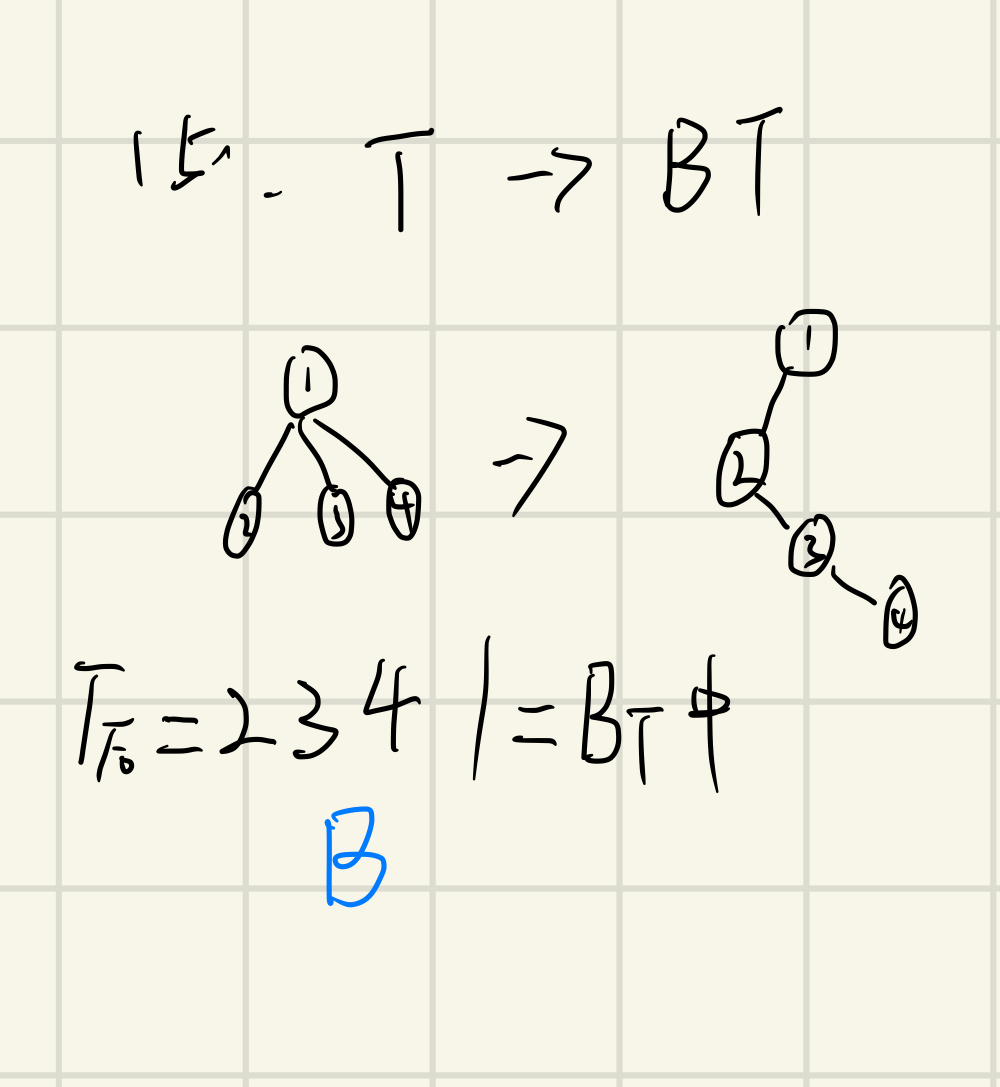 15. T → BT
1 → 1
2 3 4 2
3
4
T后 = 2 3 4 1 = BT中
B